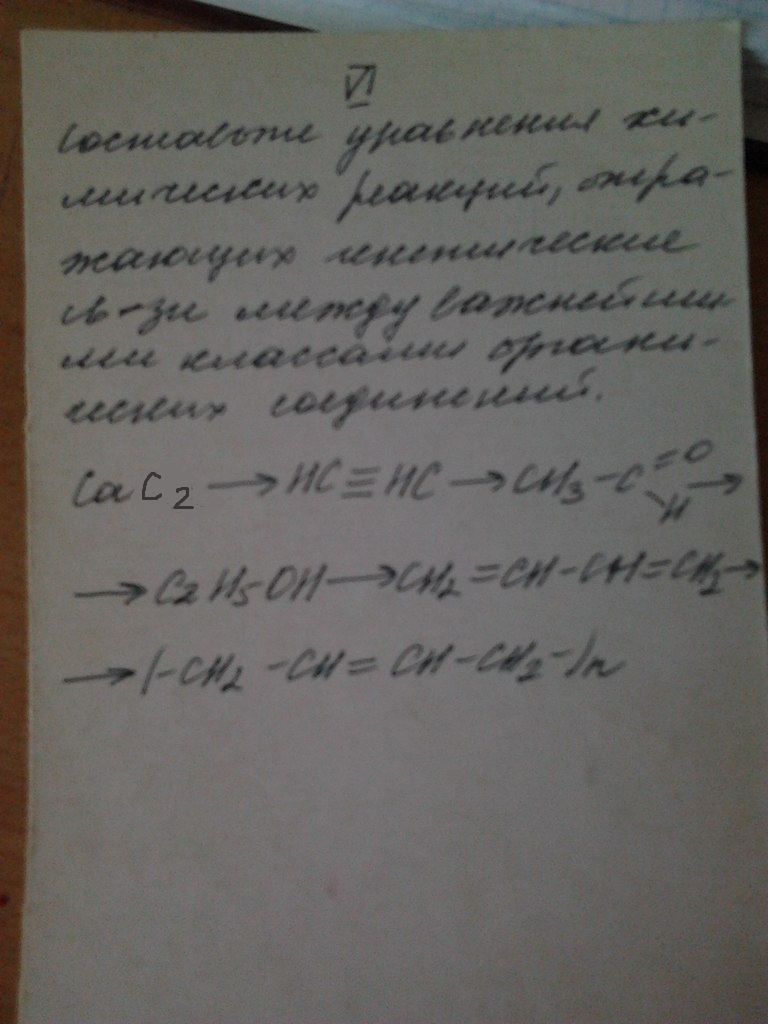 VI
Составьте уравнения хи-
мических реакций, отра-
жающих генетические
св-зи между важнейши
ми классами органи-
ческих соединений.
CaC2 → HC≡HC → CH3-C=O-H →
→ C2H5OH → CH2=CH-CH=CH2 →
→ (-CH2-CH=CH-CH2-)n